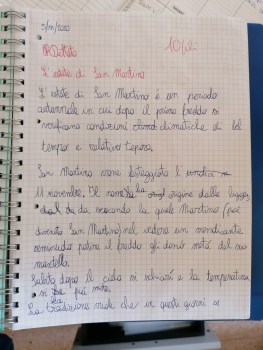 Dettato
10 più
L'estate di San Martino
L'estate di San Martino è un periodo
autunnale in cui dopo il primo freddo si
verificano condizioni climatiche di bel
tempo e relativo tepore.
San Martino viene festeggiato l'
11 novembre. Il nome ha origine dalla leggen
da secondo la quale Martino (poi
divenuto San Martino) nel vedere un mendicante
seminudo patire il freddo gli donò metà del suo
mantello.
Subito dopo il cielo si schiarì e la temperatura
si fece più mite.
La tradizione vuole che in questi giorni si